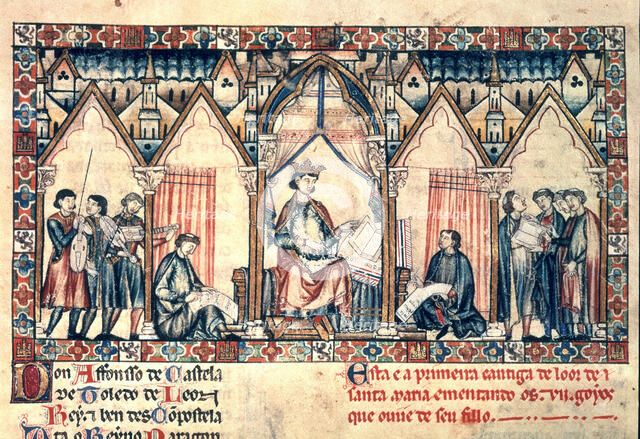 Don Affonsso de Castela
de Toledo de Leon
Rey ⁊ ben des Cõpostela
Ata o Reyno Daragon
Esta e a primeira cantiga de loor de
santa maria ementando os .vii. goyos
que ouue de seu fillo.